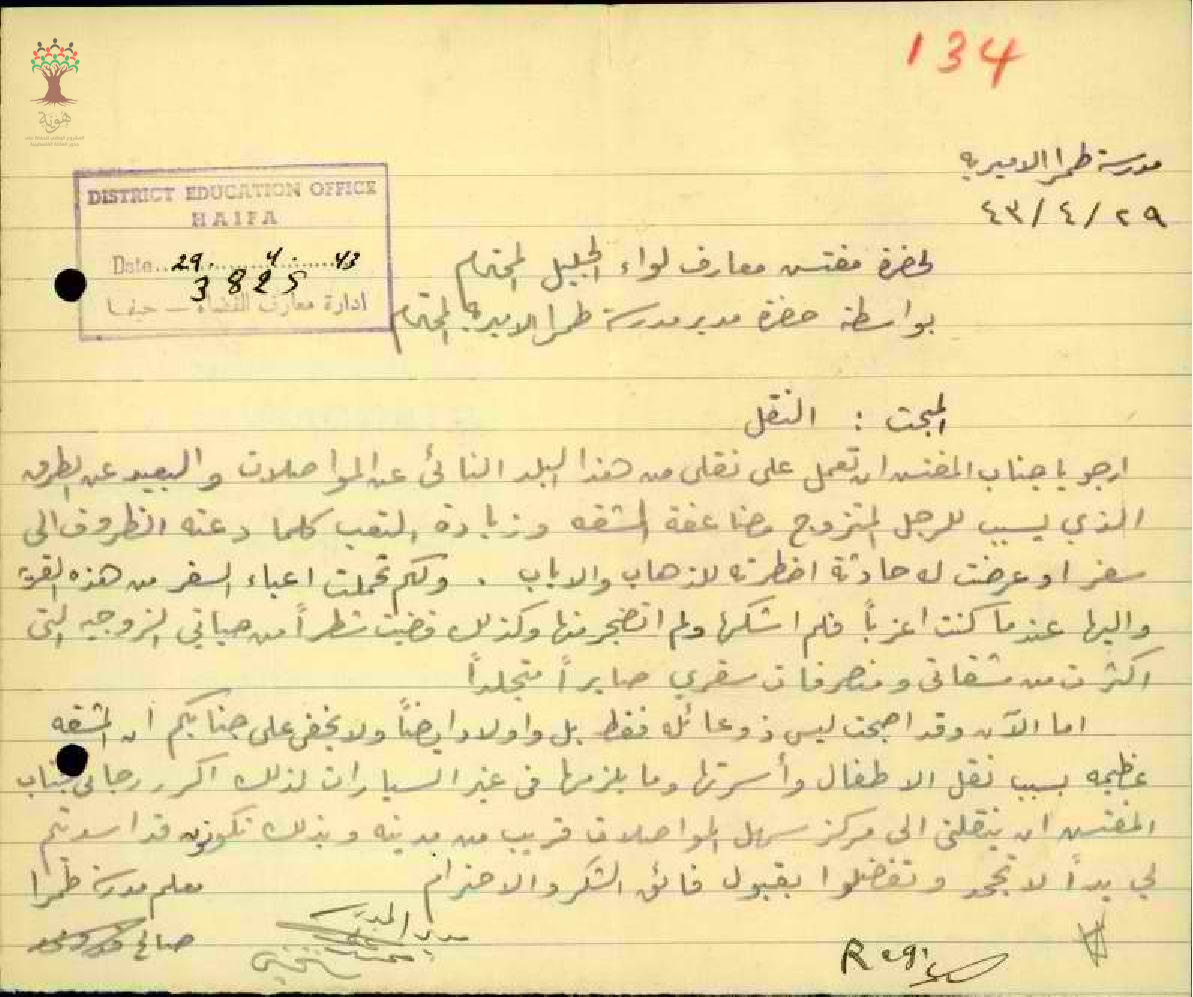 134
هوية
مدرسة طمرا الاميرية
٢٩/٤/٤٣
DISTRICT EDUCATION OFFICE
HAIFA
Date 29. 4. 43
3825
ادارة معارف القضاء — حيفا
لحضرة مفتش معارف لواء الجليل المحترم
بواسطة حضرة مدير مدرسة طمرا الاميرية المحترم
المبحث : النقل
ارجو يا جناب المفتش ان تعمل على نقلي من هذا البلد النائي عن المواصلات والبعيد عن الطرق
الذي يسبب للرجل المتزوج مضاعفة المشقه وزيادة التعب كلما دعته الظروف الى
سفر او عرضت له حادثة اضطرته للذهاب والاياب . ولكم تحملت اعباء السفر من هذه القرية
واليها عندما كنت اعزباً فلم اشكها ولم اتضجر منها وكذلك قضيت شطراً من حياتي الزوجيه التي
اكثرت من مشقاتي و سفري صابراً متجلداً
اما الآن وقد اصبحت ليس ذو عائله فقط بل واولاد ايضاً ولا يخفى على جنابكم ان المشقه
عظيمه بسبب نقل الاطفال وأسرتها وما يلزمها في غير السيارات لذلك اكرر رجائي لجناب
المفتش ان ينقلني الى مركز سهل المواصلات قريب من مدينه وبذلك تكونون قد اسديتم
لي يداً لا تجحد وتفضلوا بقبول فائق الشكر والاحترام
معلم مدرسة طمرا
صالح
مدير المدرسة
Reg.